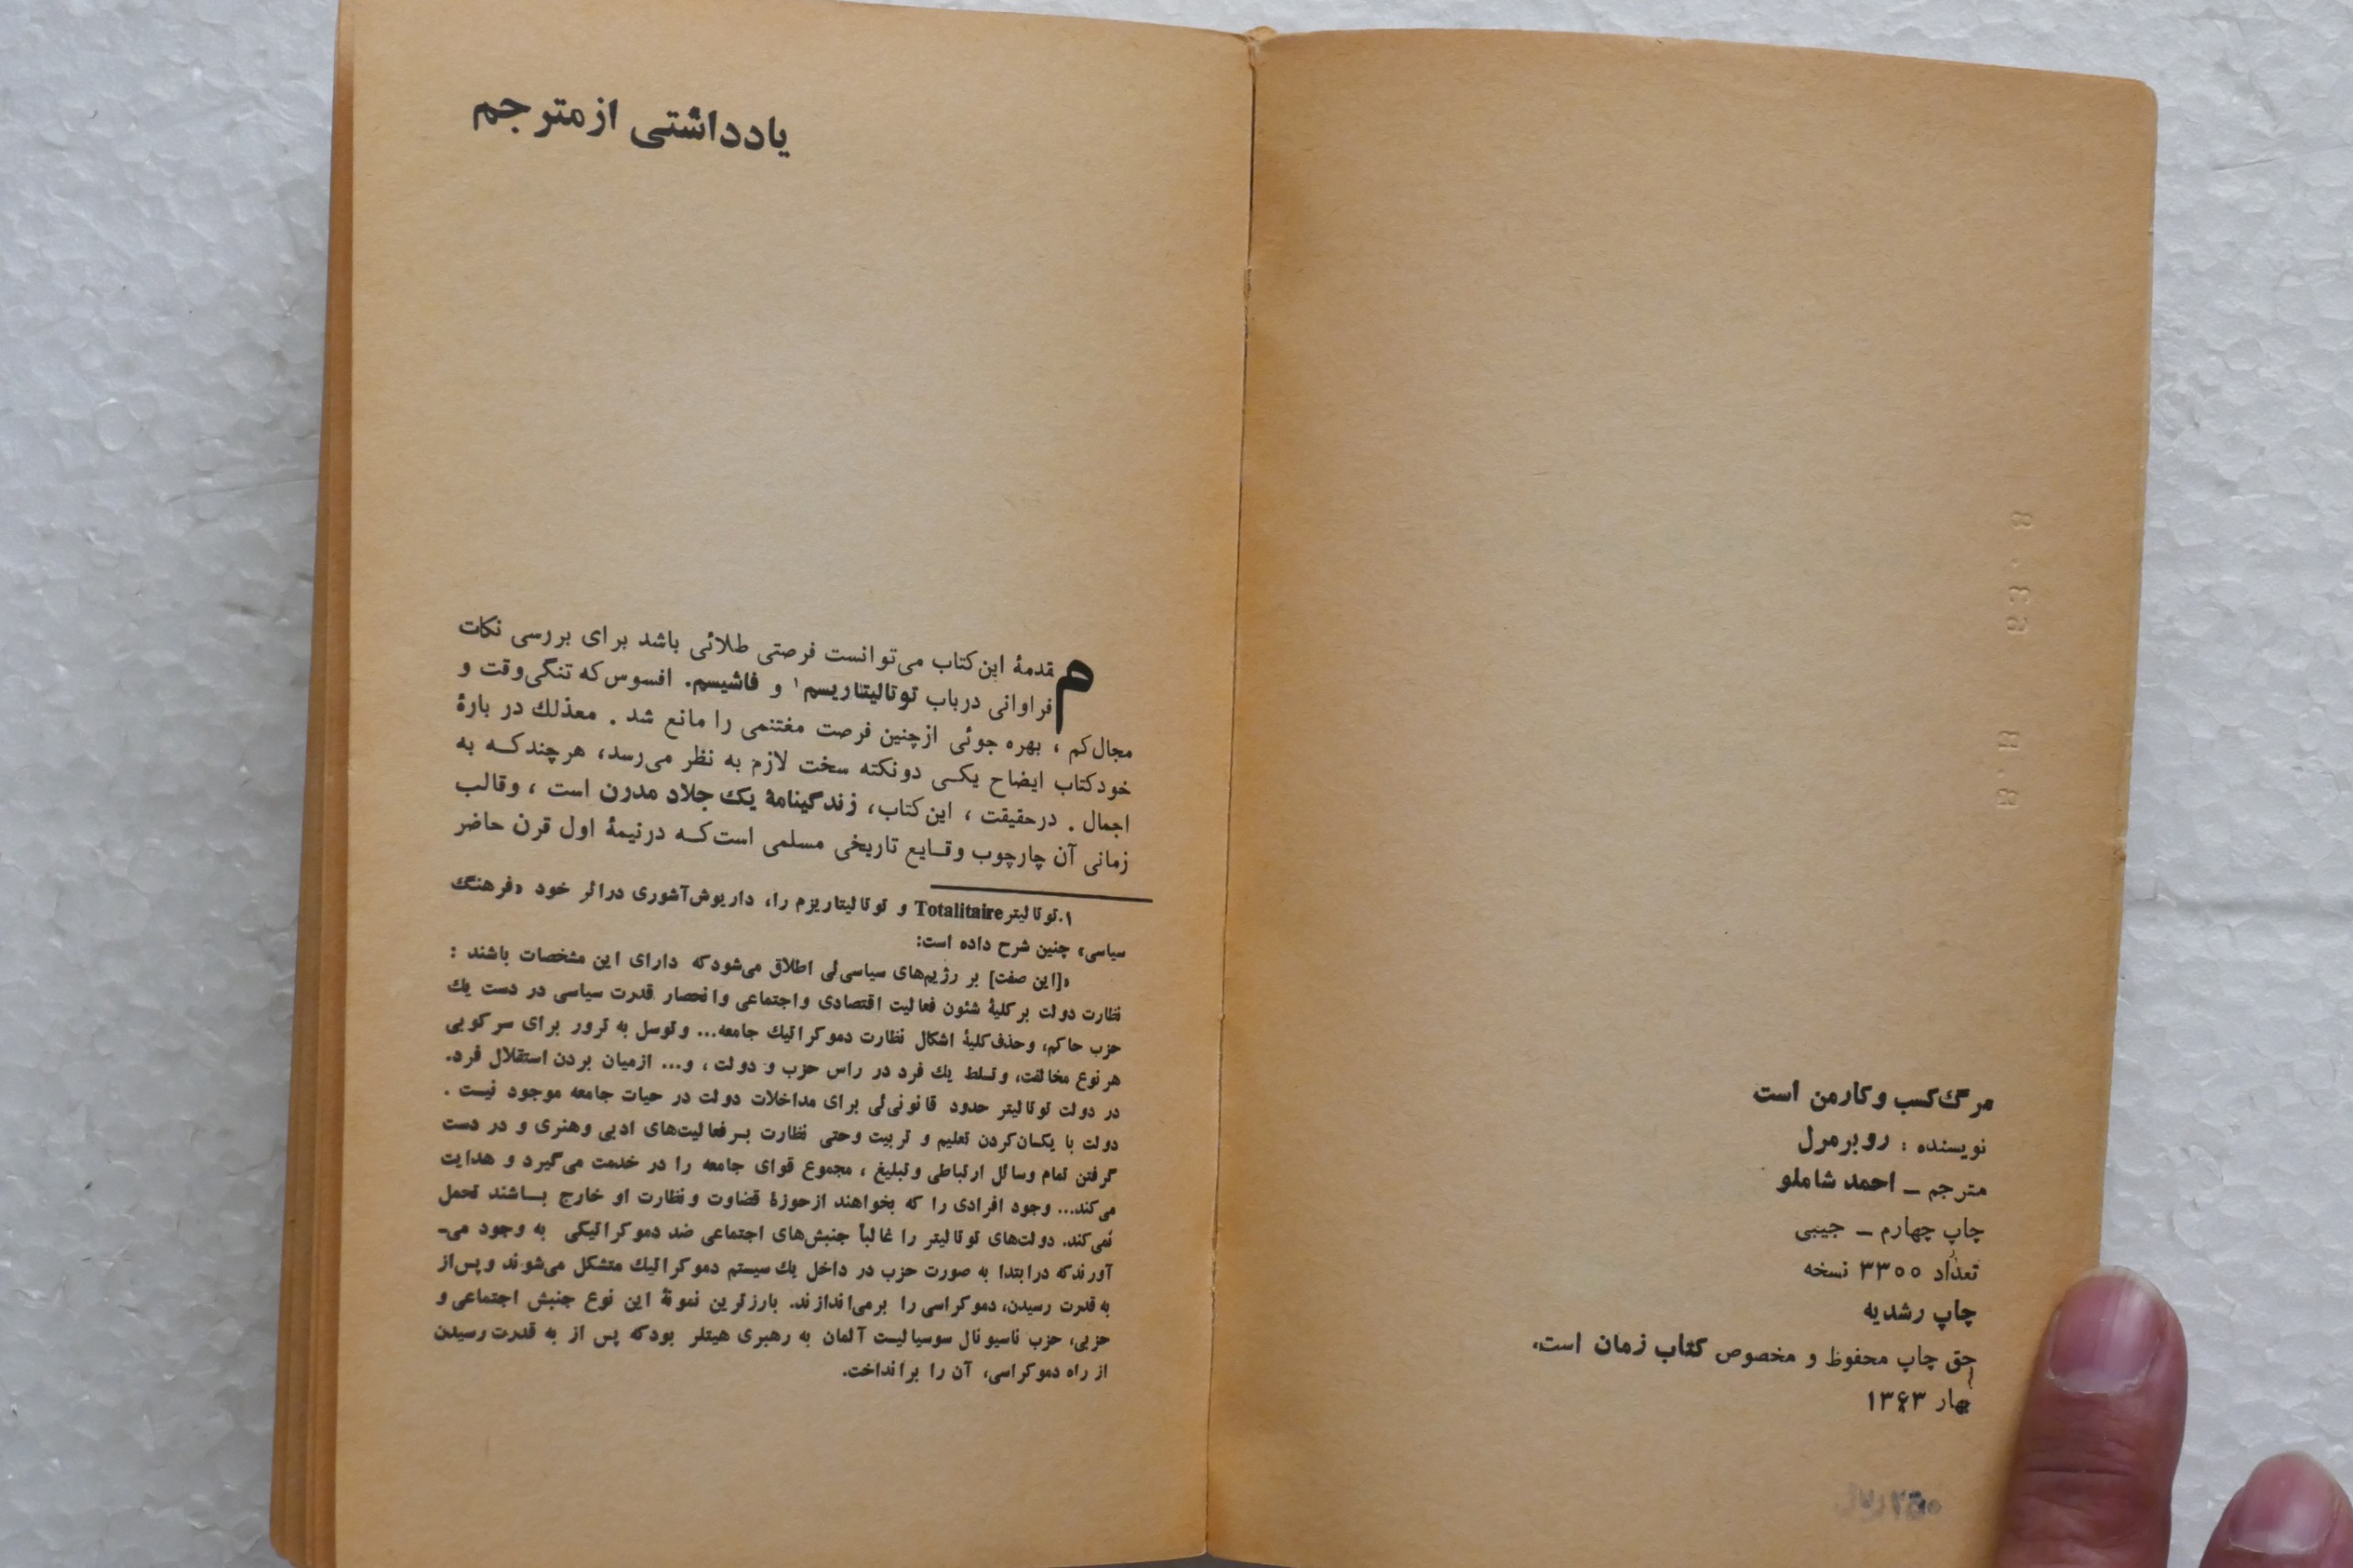 مرگ‌کسب وکارمن است
نویسنده : روبرمرل
مترجم ــ احمد شاملو
چاپ چهارم ــ جیبی
تعداد ۳۳۰۰ نسخه
چاپ رشدیه
حق چاپ محفوظ و مخصوص کتاب زمان است.
بهار ۱۳۶۳
یادداشتی از مترجم
مقدمهٔ این کتاب می‌توانست فرصتی طلائی باشد برای بررسی نکات
فراوانی درباب توتالیتاریسم۱ و فاشیسم. افسوس که تنگی‌وقت و
مجال‌کم ، بهره جوئی ازچنین فرصت مغتنمی را مانع شد . معذلك در بارهٔ
خودکتاب ایضاح یکـی دونکته سخت لازم به نظر می‌رسد، هرچندکـه به
اجمال . درحقیقت ، این کتاب، زندگینامهٔ یك جلاد مدرن است ، وقالب
زمانی آن چارچوب وقـایع تاریخی مسلمی است‌کـه درنیمهٔ اول قرن حاضر
۱.توتالیتر Totalitaire و توتالیتاریزم را، داریوش‌آشوری دراثر خود «فرهنگ
سیاسی» چنین شرح داده است:
«[این صفت] بر رژیم‌های سیاسی‌ئی اطلاق می‌شودکه دارای این مشخصات باشند :
نظارت دولت برکلیهٔ شئون فعالیت اقتصادی واجتماعی وانحصار قدرت سیاسی در دست یك
حزب حاکم، وحذف‌کلیهٔ اشکال نظارت دموکراتیك جامعه... وتوسل به ترور برای سرکوبی
هرنوع مخالفت، وتسلط یك فرد در راس حزب و دولت ، و... ازمیان بردن استقلال فرد.
در دولت توتالیتر حدود قانونی‌ئی برای مداخلات دولت در حیات جامعه موجود نیست .
دولت با یکسان‌کردن تعلیم و تربیت وحتی نظارت بـرفعالیت‌های ادبی وهنری و در دست
گرفتن تمام وسائل ارتباطی وتبلیغ ، مجموع قوای جامعه را در خدمت می‌گیرد و هدایت
می‌کند... وجود افرادی را که بخواهند ازحوزهٔ قضاوت ونظارت او خارج بـاشند تحمل
نمی‌کند. دولت‌های توتالیتر را غالباً جنبش‌های اجتماعی ضد دموکراتیکی به وجود می‌ـ
آورندکه درابتدا به صورت حزب در داخل یك سیستم دموکراتیك متشکل می‌شوند وپس‌از
به قدرت رسیدن، دموکراسی را برمی‌اندازند. بارزترین نمونهٔ این نوع جنبش اجتماعی و
حزبی، حزب ناسیونال سوسیالیست آلمان به رهبری هیتلر بودکه پس از به قدرت رسیدن
از راه دموکراسی، آن را برانداخت.